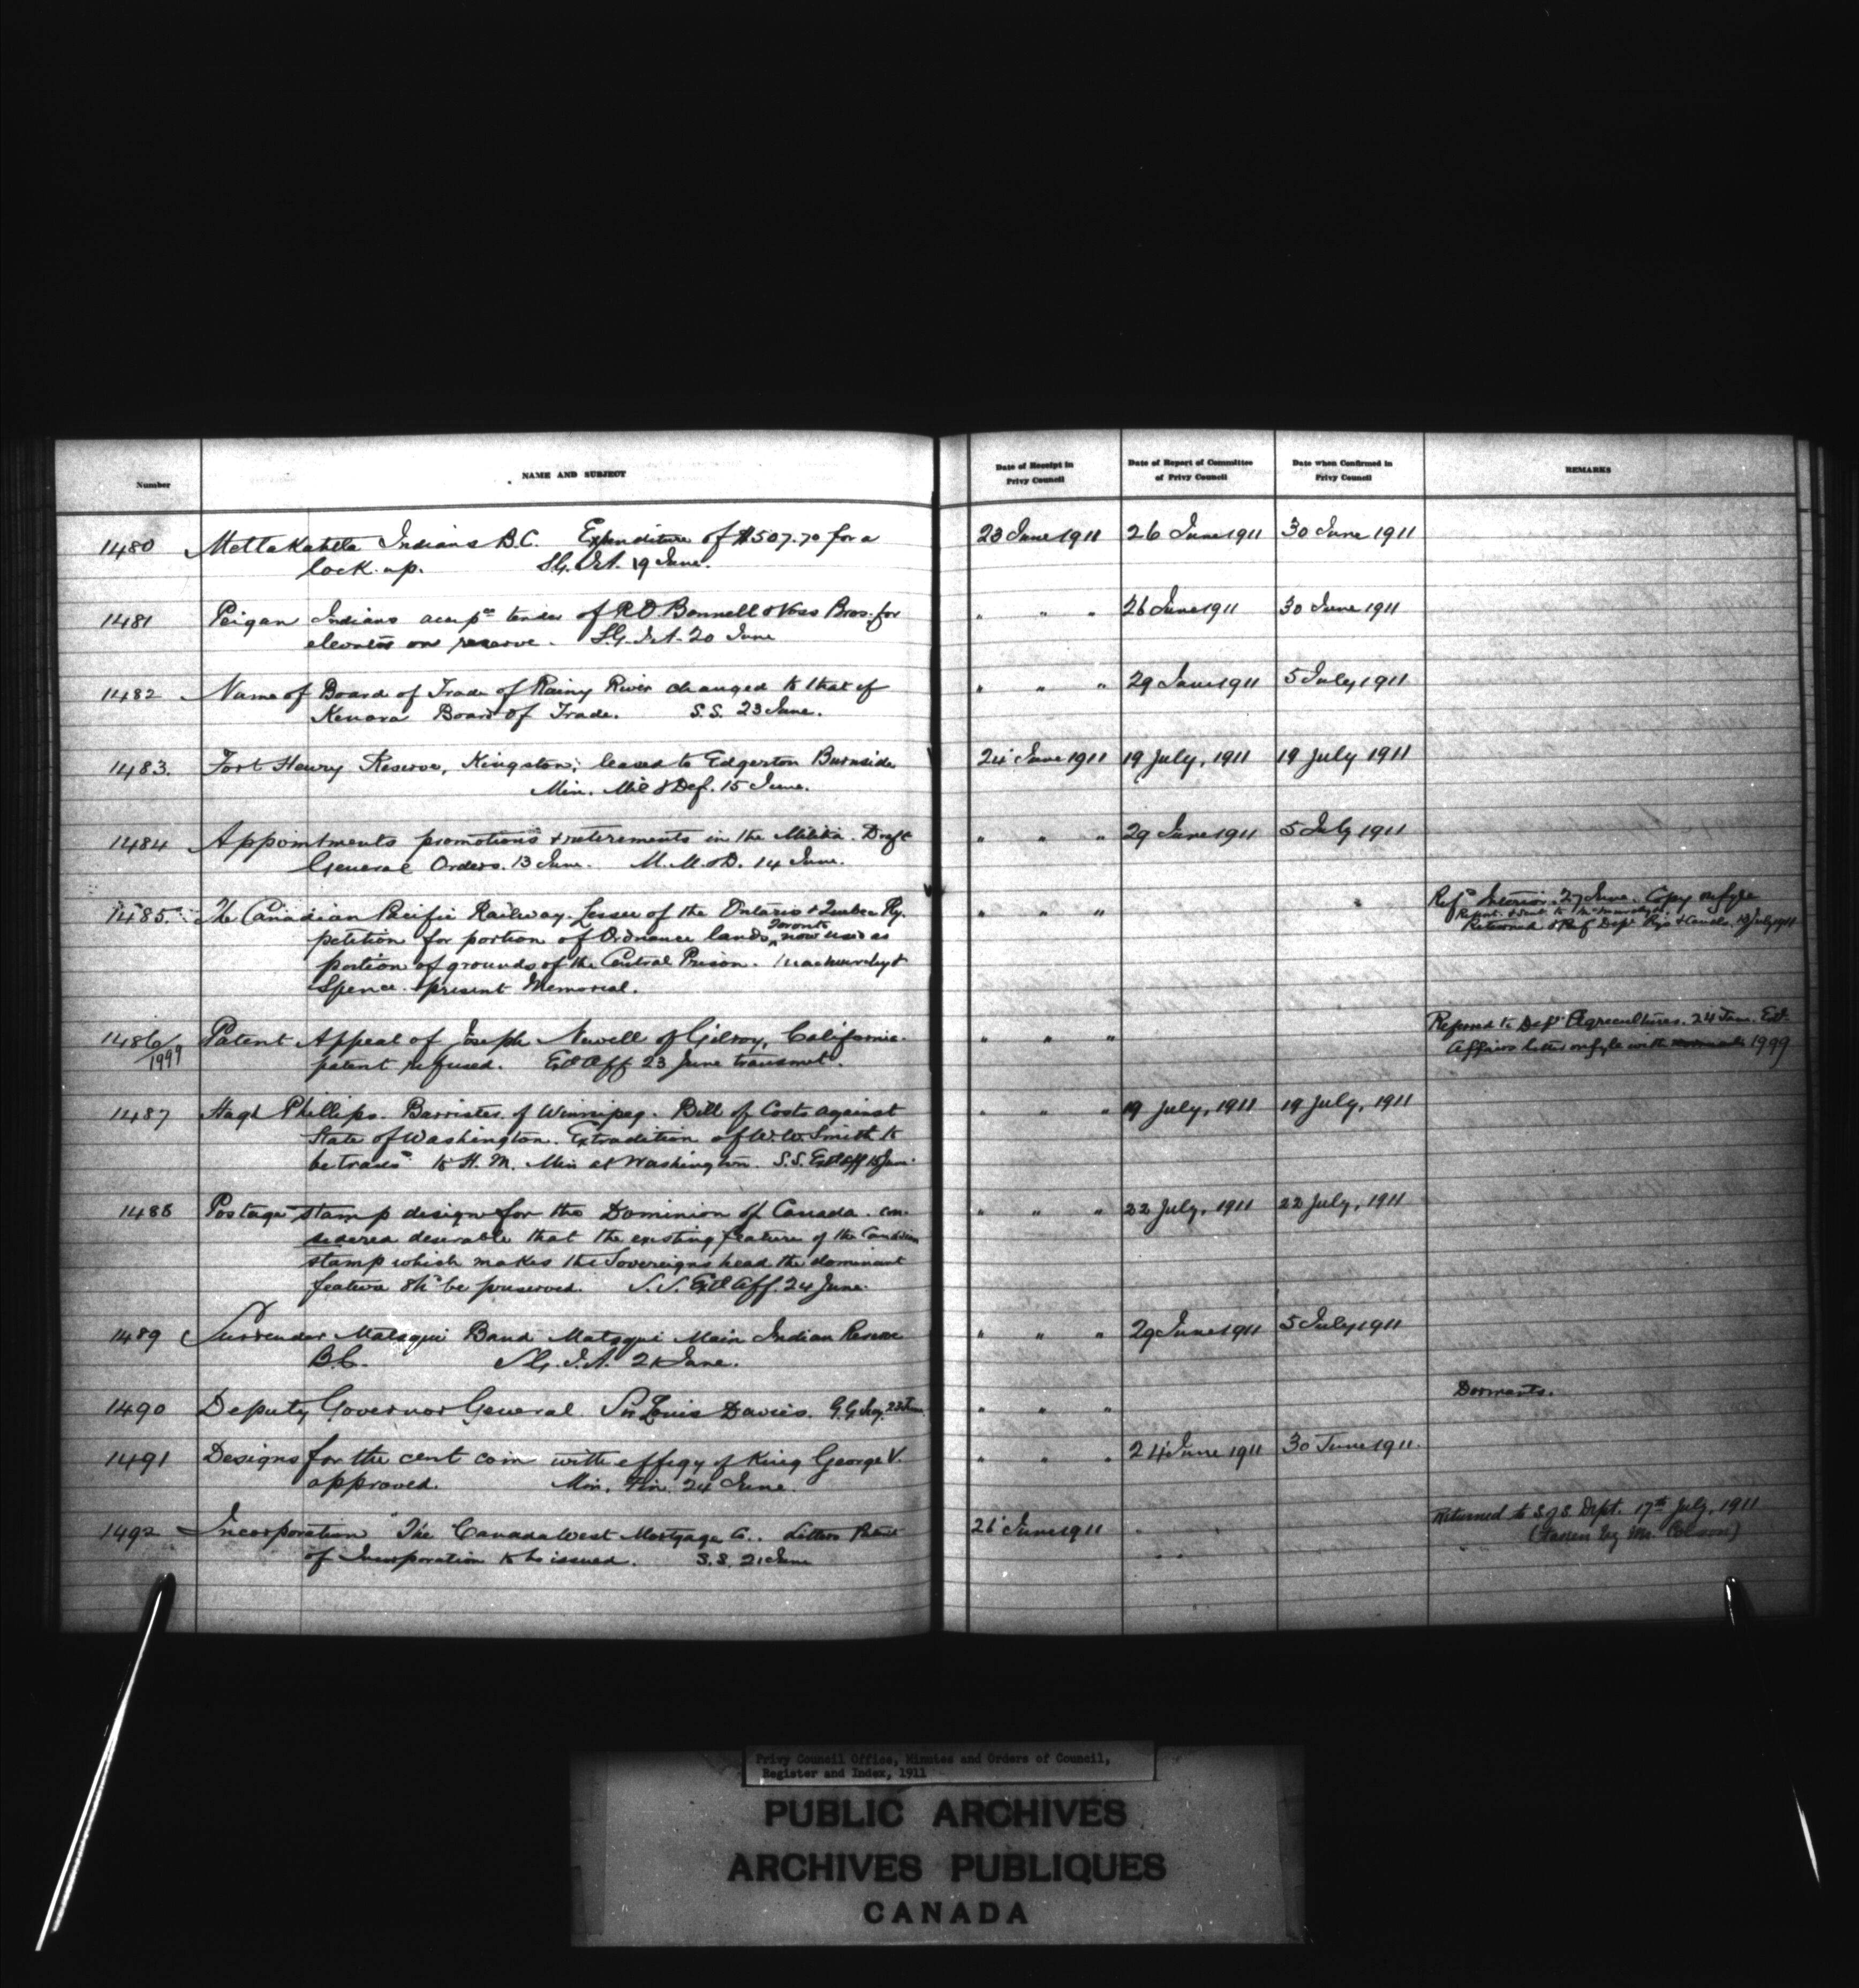 Number
NAME AND SUBJECT
Date of Receipt in
Privy Council
Date of Report of Committee
of Privy Council
Date when Confirmed in
Privy Council
REMARKS
1480 Mettakahtla Indians B.C. Expenditure of $507.70 for a 23 June 1911 26 June 1911 30 June 1911
lock-up. S.G.I.A. 19 June.
1481 Peigan Indians accepce tender of R D Bonnell & Voss Bros. for " " " 26 June 1911 30 June 1911
elevators on reserve. S.G.I.A. 20 June
1482 Name of Board of Trade of Rainy River changed to that of " " " 29 June 1911 5 July 1911
Kenora Board of Trade. S.S. 23 June.
1483. Fort Henry Reserve, Kingston, leased to Edgerton Burnside 24 June 1911 19 July, 1911 19 July 1911
Min. Mil & Def. 15 June.
1484 Appointments promotions & retirements in the Militia. Draft " " " 29 June 1911 5 July 1911
General Orders. 13 June. M.M.&D. 14 June.
1485. The Canadian Pacific Railway. Lessee of the Ontario & Quebec Ry. " " " Refd Interior. 27 June. Copy on fyle
petition for portion of Ordnance lands Toronto now used as
Returned & Ref Dept Rys & Canals. 13 July 1911
portion of grounds of the Central Prison.
Spence present Memorial.
1486/1999 Patent Appeal of Joseph Newell of Gilroy, California. " " " Referred to Dept Agriculture. 24 June. Ext
patent refused. Ext Aff 23 June transmit. Affairs letter on fyle with 1999
1487 Hugh Phillips. Barrister of Winnipeg. Bill of Costs against " " " 19 July, 1911 19 July, 1911
State of Washington. Extradition of W.W. Smith to
be transd to H.M. Min at Washington. S.S. Ext Aff 15 June.
1488 Postage stamp design for the Dominion of Canada. con- " " " 22 July, 1911 22 July, 1911
sidered desirable that the existing feature of the Canadian
stamp which makes the Sovereigns head the dominant
feature shd be preserved. S.S. Ext Aff. 24 June.
1489 Surrender Matsqui Band Matsqui Main Indian Reserve " " " 29 June 1911 5 July 1911
B.C. S.G.I.A. 21 June.
1490 Deputy Governor General Sir Louis Davies. G.G. Secy. 23 June " " " Dormants.
1491 Designs for the cent coin with effigy of King George V. " " " 24 June 1911 30 June 1911.
approved. Min. Fin. 24 June.
1492 Incorporation "The Canada West Mortgage Co. Letters Patent 26 June 1911 Returned to S of S Dept. 17th July, 1911
of Incorporation to be issued. S.S. 21 June (Taken by Mr. Colson)
Privy Council Office, Minutes and Orders of Council,
Register and Index, 1911
PUBLIC ARCHIVES
ARCHIVES PUBLIQUES
CANADA